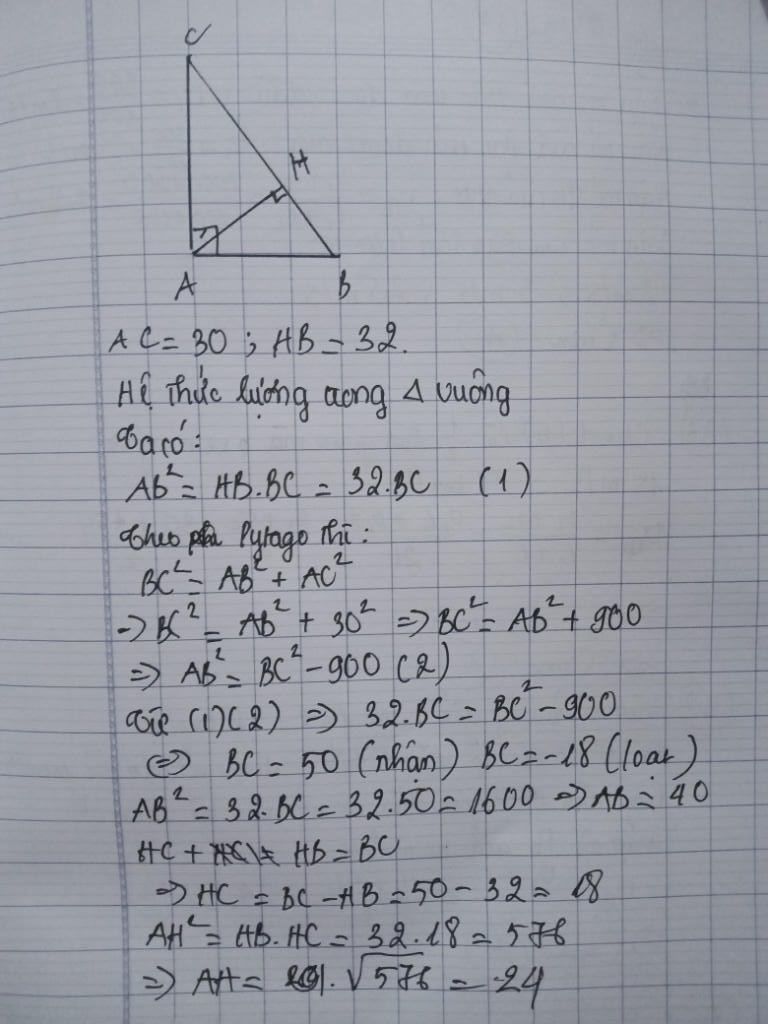 C
H
A
B
AC = 30 ; HB = 32.
Hệ thức lượng trong Δ vuông
Ta có:
AB² = HB.BC = 32.BC (1)
Theo Pytago thì:
BC² = AB² + AC²
→ BC² = AB² + 30² ⇒ BC² = AB² + 900
⇒ AB² = BC² - 900 (2)
Từ (1)(2) ⇒ 32.BC = BC² - 900
⇔ BC = 50 (nhận) BC = -18 (loại)
AB² = 32.BC = 32.50 = 1600 ⇒ AB = 40
HC + HB = BC
⇒ HC = BC - HB = 50 - 32 = 18
AH² = HB.HC = 32.18 = 576
⇒ AH = √576 = 24